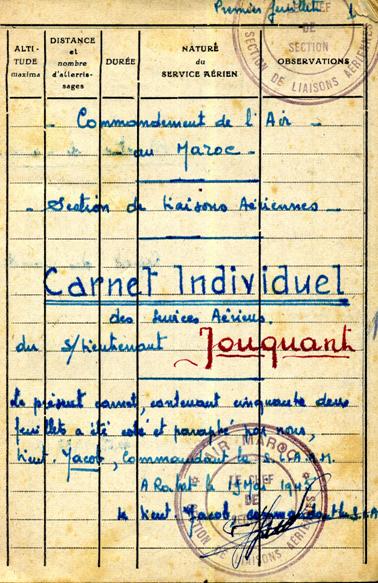 Premier feuillet 1
CHEF
DE
SECTION
SECTION DE LIAISONS AÉRIENNES
ALTI-
TUDE
maxima
DISTANCE
et
nombre
d'atterris-
sages
DURÉE
NATURE
du
SERVICE AÉRIEN
OBSERVATIONS
- Commandement de l'Air -
- au Maroc -
- Section de Liaisons Aériennes -
Carnet Individuel
des services Aériens.
du s/Lieutenant Jouquant
Le présent carnet, contenant cinquante deux
feuillets a été coté et paraphé par nous,
Lieut. Jacob, Commandant la S.L.A.M.
A Rabat le 15 Mai 1945
le Lieut Jacob, commandant la S.L.A
AIR MAROC
LE CHEF
DE
SECTION
LIAISONS AÉRIENNES